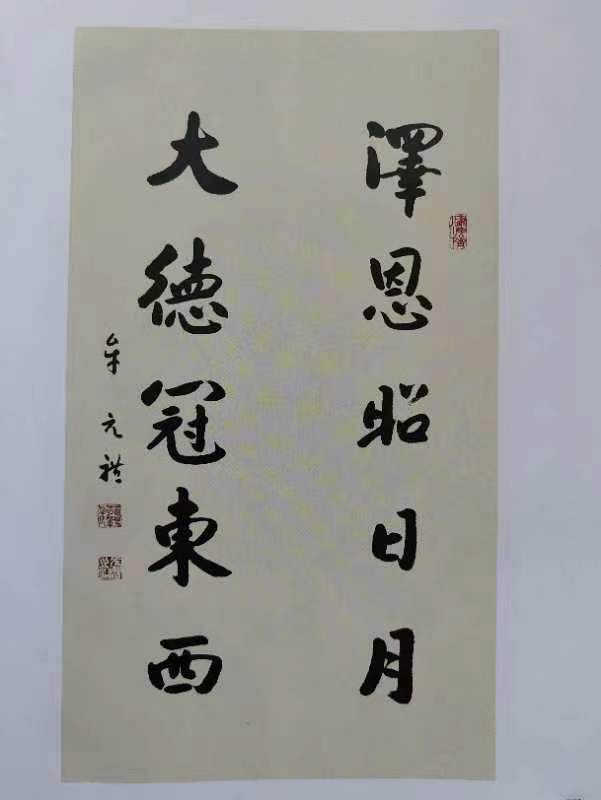 澤恩昭日月
大德冠東西
牟元禮